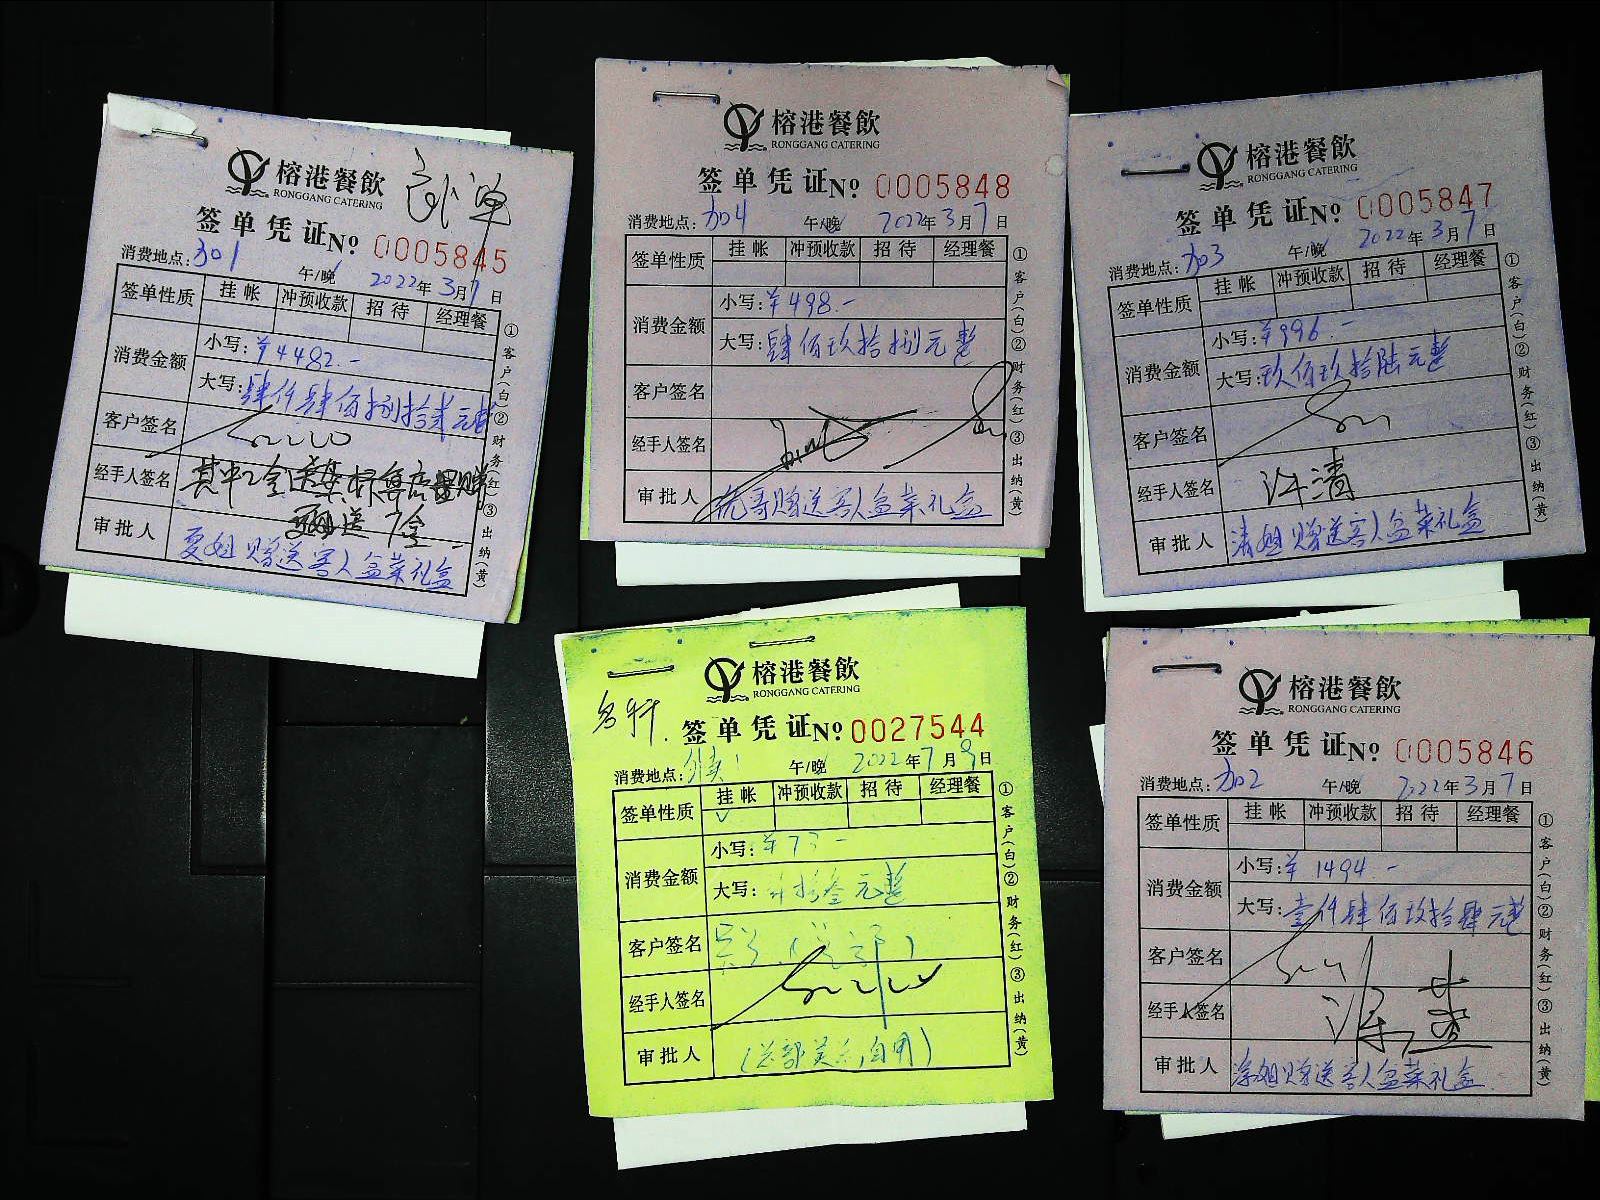 榕港餐飲
RONGGANG CATERING
签单凭证№ 0005845
消费地点: 加1 午/晚 2022年3月7日
签单性质 挂帐 冲预收款 招待 经理餐
消费金额 小写: ¥4482.-
大写: 肆仟肆佰捌拾贰元整
客户签名
经手人签名
审批人 夏姐赠送客人盆菜礼盒
①客户(白)②财务(红)③出纳(黄)
榕港餐飲
RONGGANG CATERING
签单凭证№ 0005848
消费地点: 加4 午/晚 2022年3月7日
签单性质 挂帐 冲预收款 招待 经理餐
消费金额 小写: ¥498.-
大写: 肆佰玖拾捌元整
客户签名
经手人签名
审批人 赠送客人盆菜礼盒
①客户(白)②财务(红)③出纳(黄)
榕港餐飲
RONGGANG CATERING
签单凭证№ 0005847
消费地点: 加3 午/晚 2022年3月7日
签单性质 挂帐 冲预收款 招待 经理餐
消费金额 小写: ¥996.-
大写: 玖佰玖拾陆元整
客户签名
经手人签名 许清
审批人 清姐赠送客人盆菜礼盒
①客户(白)②财务(红)③出纳(黄)
榕港餐飲
RONGGANG CATERING
签单凭证№ 0027544
消费地点: 午/晚 2022年7月9日
签单性质 挂帐 冲预收款 招待 经理餐
消费金额 小写: ¥73-
大写: 柒拾叁元整
客户签名
经手人签名
审批人
①客户(白)②财务(红)③出纳(黄)
榕港餐飲
RONGGANG CATERING
签单凭证№ 0005846
消费地点: 加2 午/晚 2022年3月7日
签单性质 挂帐 冲预收款 招待 经理餐
消费金额 小写: ¥1494.-
大写: 壹仟肆佰玖拾肆元整
客户签名
经手人签名
审批人 涂姐赠送客人盆菜礼盒
①客户(白)②财务(红)③出纳(黄)